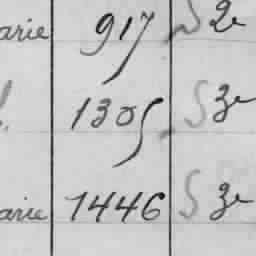 arie 917 S 2e
1305 S 3e
arie 1446 S 3e